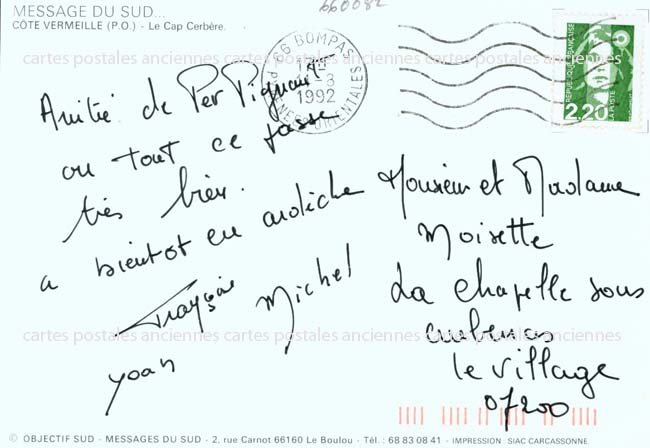 660082
MESSAGE DU SUD...
CÔTE VERMEILLE (P.O.) - Le Cap Cerbère.
66 BOMPAS
1992
PYRENEES-ORIENTALES
REPUBLIQUE FRANÇAISE
LA POSTE
2,20
cartes postales anciennes cartes postales anciennes cartes postales anciennes
Amitié de Per Pignan
ou tout ce passe
très bien.
a bientot en ardèche
Françoise Michel
yoan
Monsieur et Madame
Moisette
La chapelle sous
aubenas
le village
07200
cartes postales anciennes cartes postales anciennes cartes postales anciennes
© OBJECTIF SUD - MESSAGES DU SUD - 2, rue Carnot 66160 Le Boulou - Tél. : 68 83 08 41 - IMPRESSION : SIAC CARCASSONNE